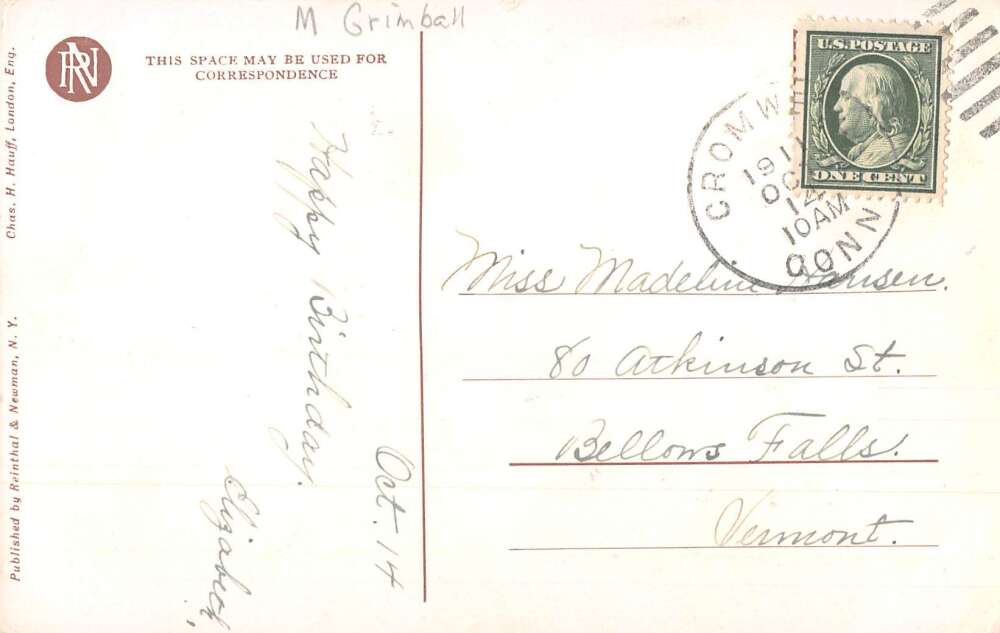 M Grimball
RN
THIS SPACE MAY BE USED FOR
CORRESPONDENCE
Chas. H. Hauff, London, Eng.
Published by Reinthal & Newman, N. Y.
Happy Birthday.
Elizabeth
Oct. 14
U.S. POSTAGE
ONE CENT
CROMW
1911
OC
12
10AM
CONN
Miss Madeline Hansen.
80 Atkinson St.
Bellows Falls.
Vermont.